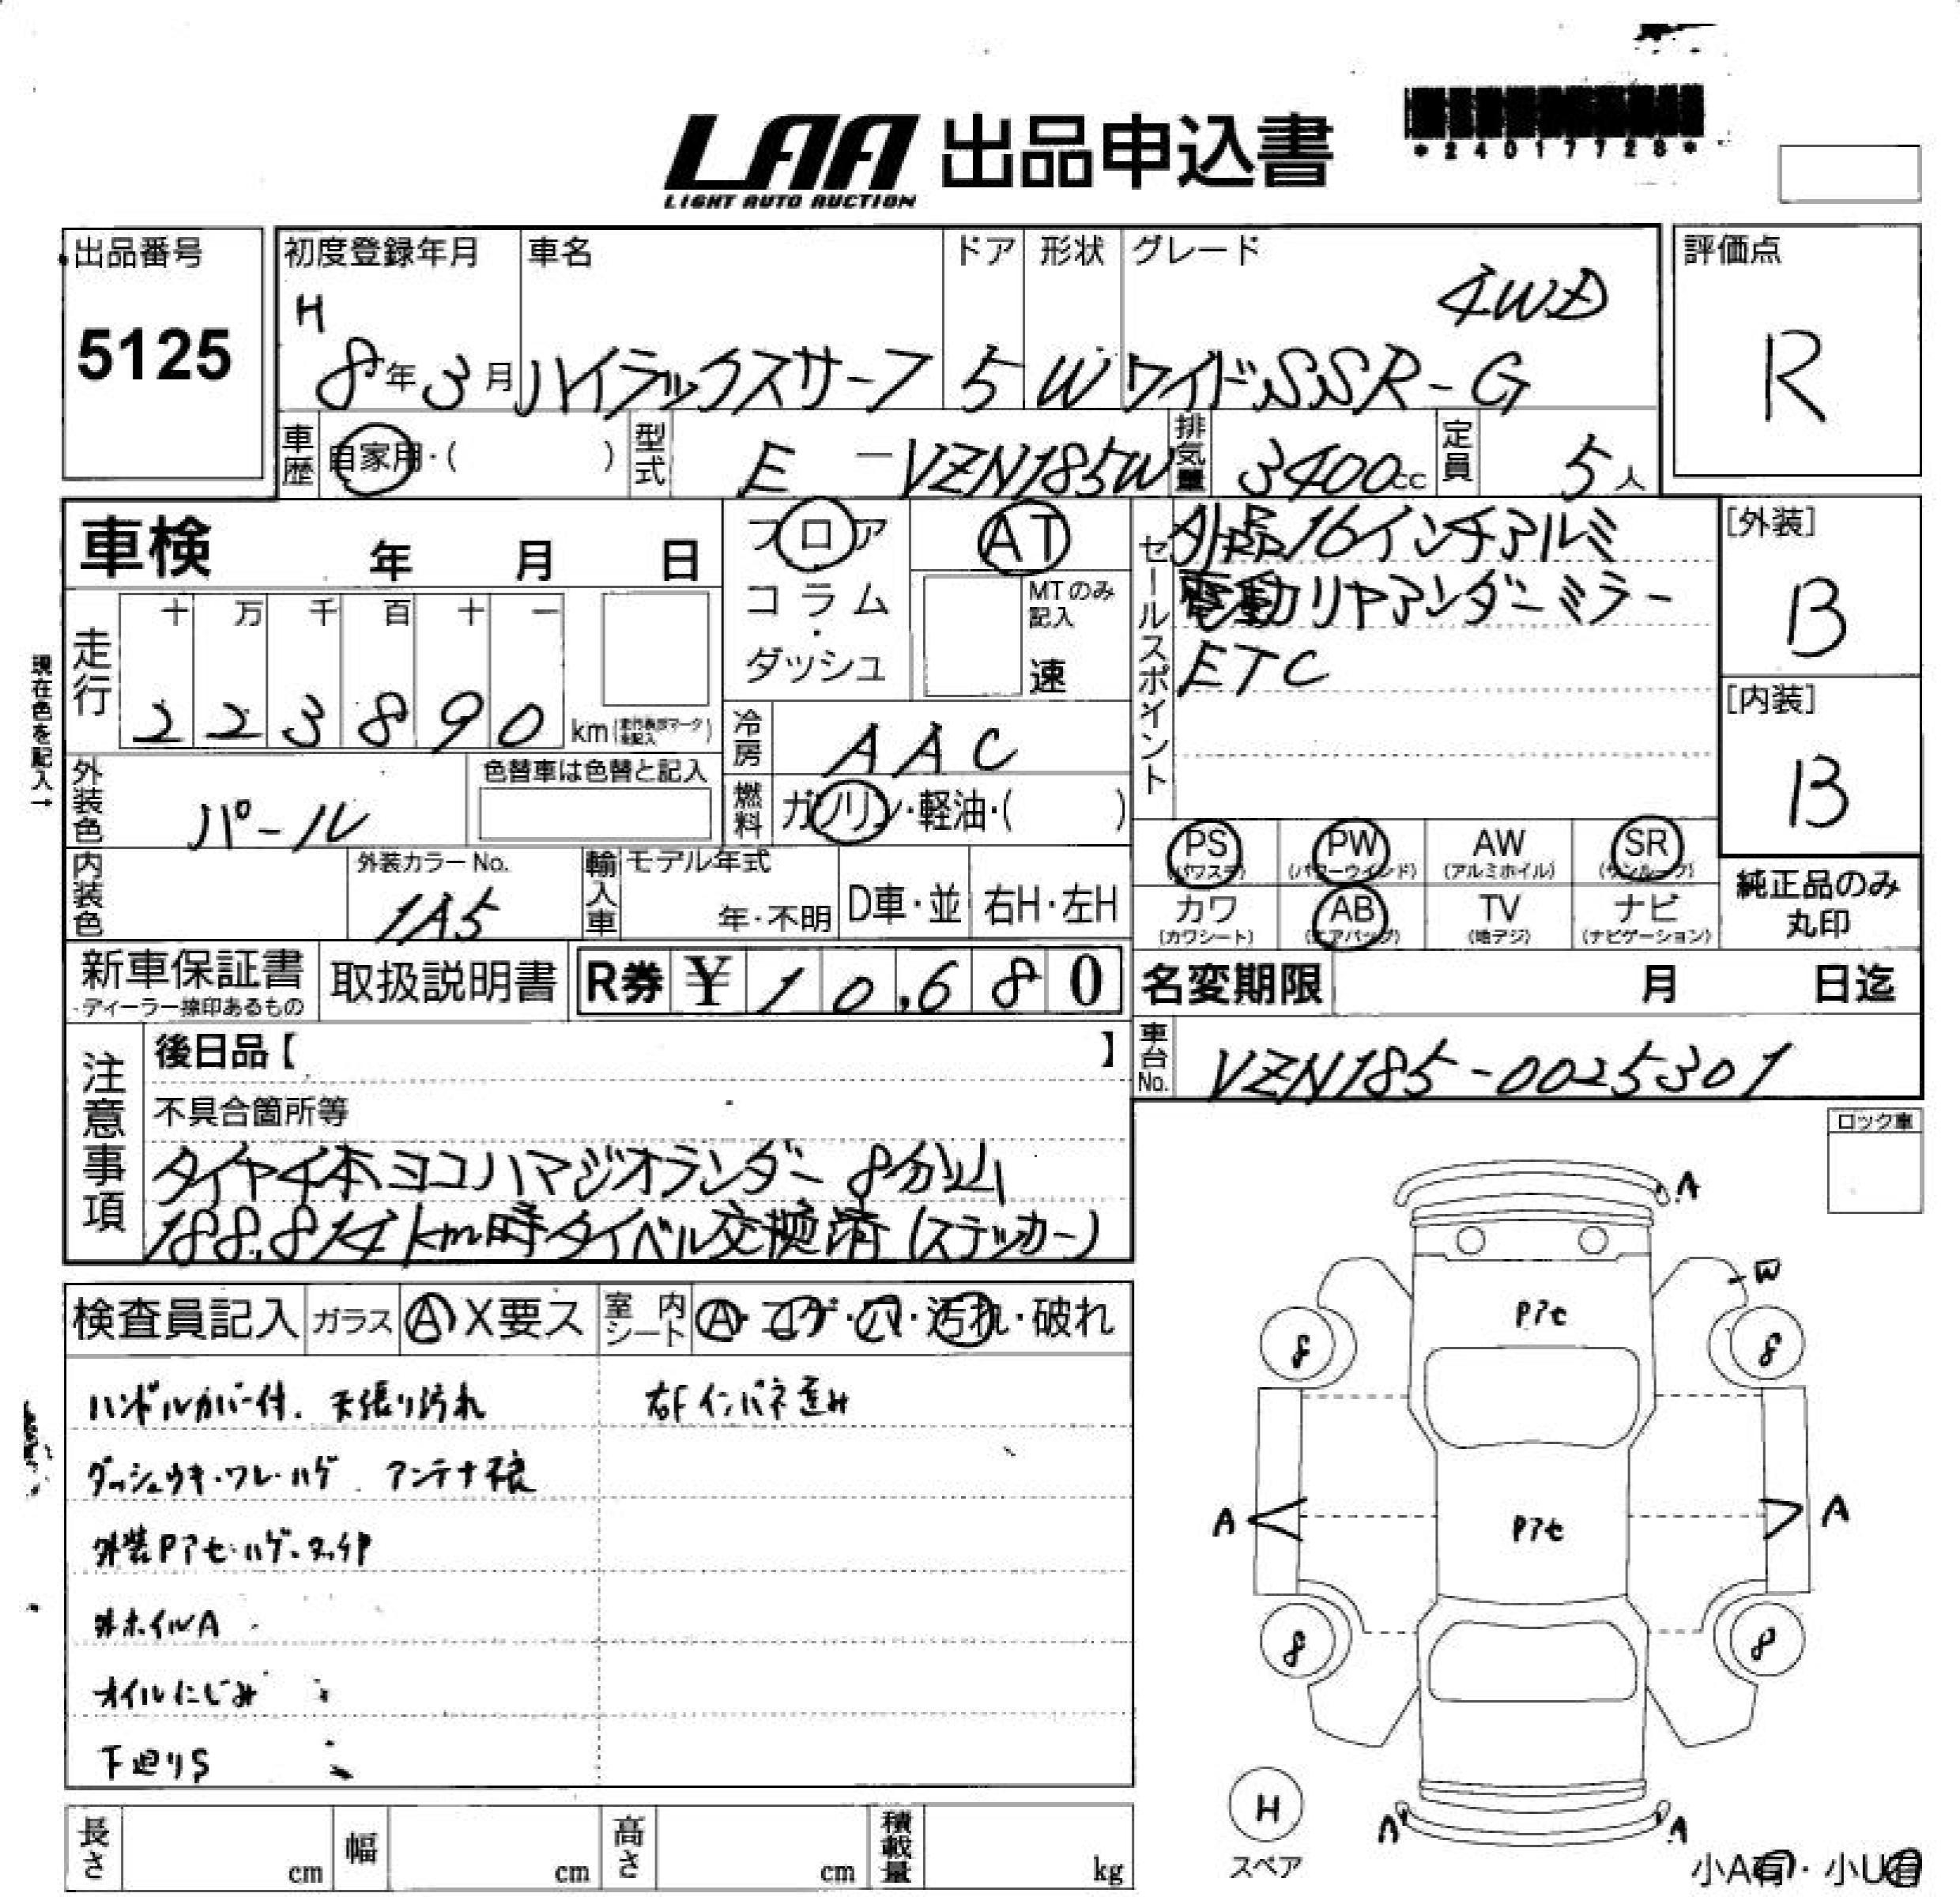 LAA 出品申込書
LIGHT AUTO AUCTION
*24017728*
出品番号
5125
初度登録年月 車名 ドア 形状 グレード
H 4WD
8年3月 ハイラックスサーフ 5 W ワイドSSR-G
評価点
R
車歴 自家用・( ) 型式 E-VZN185W 排気量 3400cc 定員 5人
車検 年 月 日
フロア AT
コラム・ダッシュ MTのみ記入 速
セールスポイント
外品16インチアルミ
電動リヤアンダーミラー
ETC
[外装]
B
[内装]
B
現在色を記入→
走行 十 万 千 百 十 一
2 2 3 8 9 0 km
冷房 AAC
外装色 パール 色替車は色替と記入
燃料 ガソリン・軽油・( )
PS (パワステ) PW (パワーウインド) AW (アルミホイル) SR (サンルーフ)
カワ (カワシート) AB (エアバッグ) TV (地デジ) ナビ (ナビゲーション)
純正品のみ丸印
内装色 外装カラーNo. 1A5
輸入車 モデル年式 年・不明 D車・並 右H・左H
新車保証書 取扱説明書 R券 ¥10,680
・ディーラー捺印あるもの
名変期限 月 日迄
車台No. VZN185-0025301
注意事項
後日品【 】
不具合箇所等
タイヤ4本ヨコハマジオランダー 8分山
188,814km時タイベル交換済(ステッカー)
ロック車
検査員記入 ガラス A X要ス 室内シート A・コゲ・穴・汚れ・破れ
ハンドルカバー付. 天張り汚れ 右Fインパネ歪み
ダッシュウキ・ワレ・ハゲ. アンテナ不良
外装Pアセ・ハゲ・
外ホイルA
オイルにじみ
下廻りS
A
W
Pアセ
8 8
A Pアセ A
8 8
H
スペア
A A
小A有・小U有
長さ cm 幅 cm 高さ cm 積載量 kg